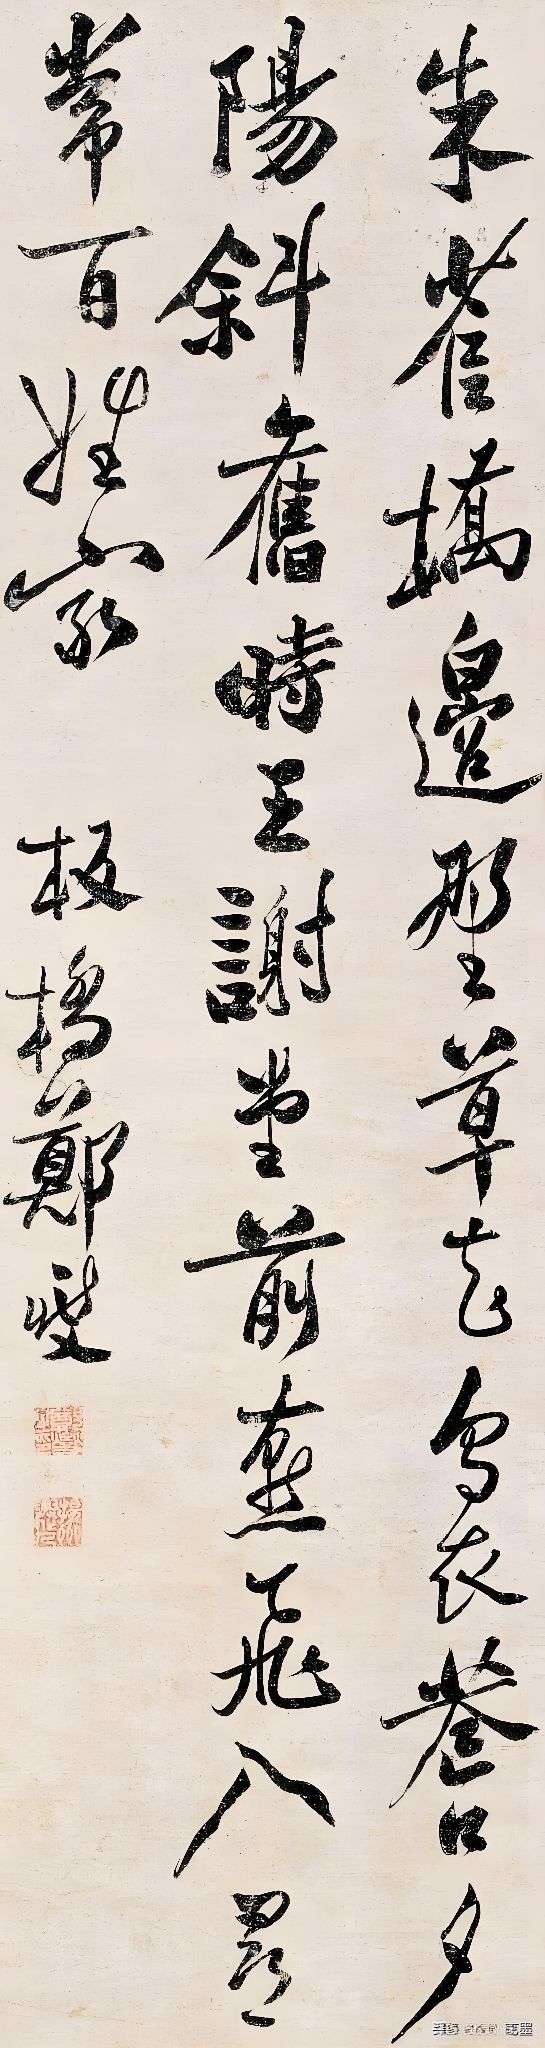 朱雀橋邊野草花烏衣巷口夕
陽斜舊時王謝堂前燕飛入尋
常百姓家 板橋鄭燮